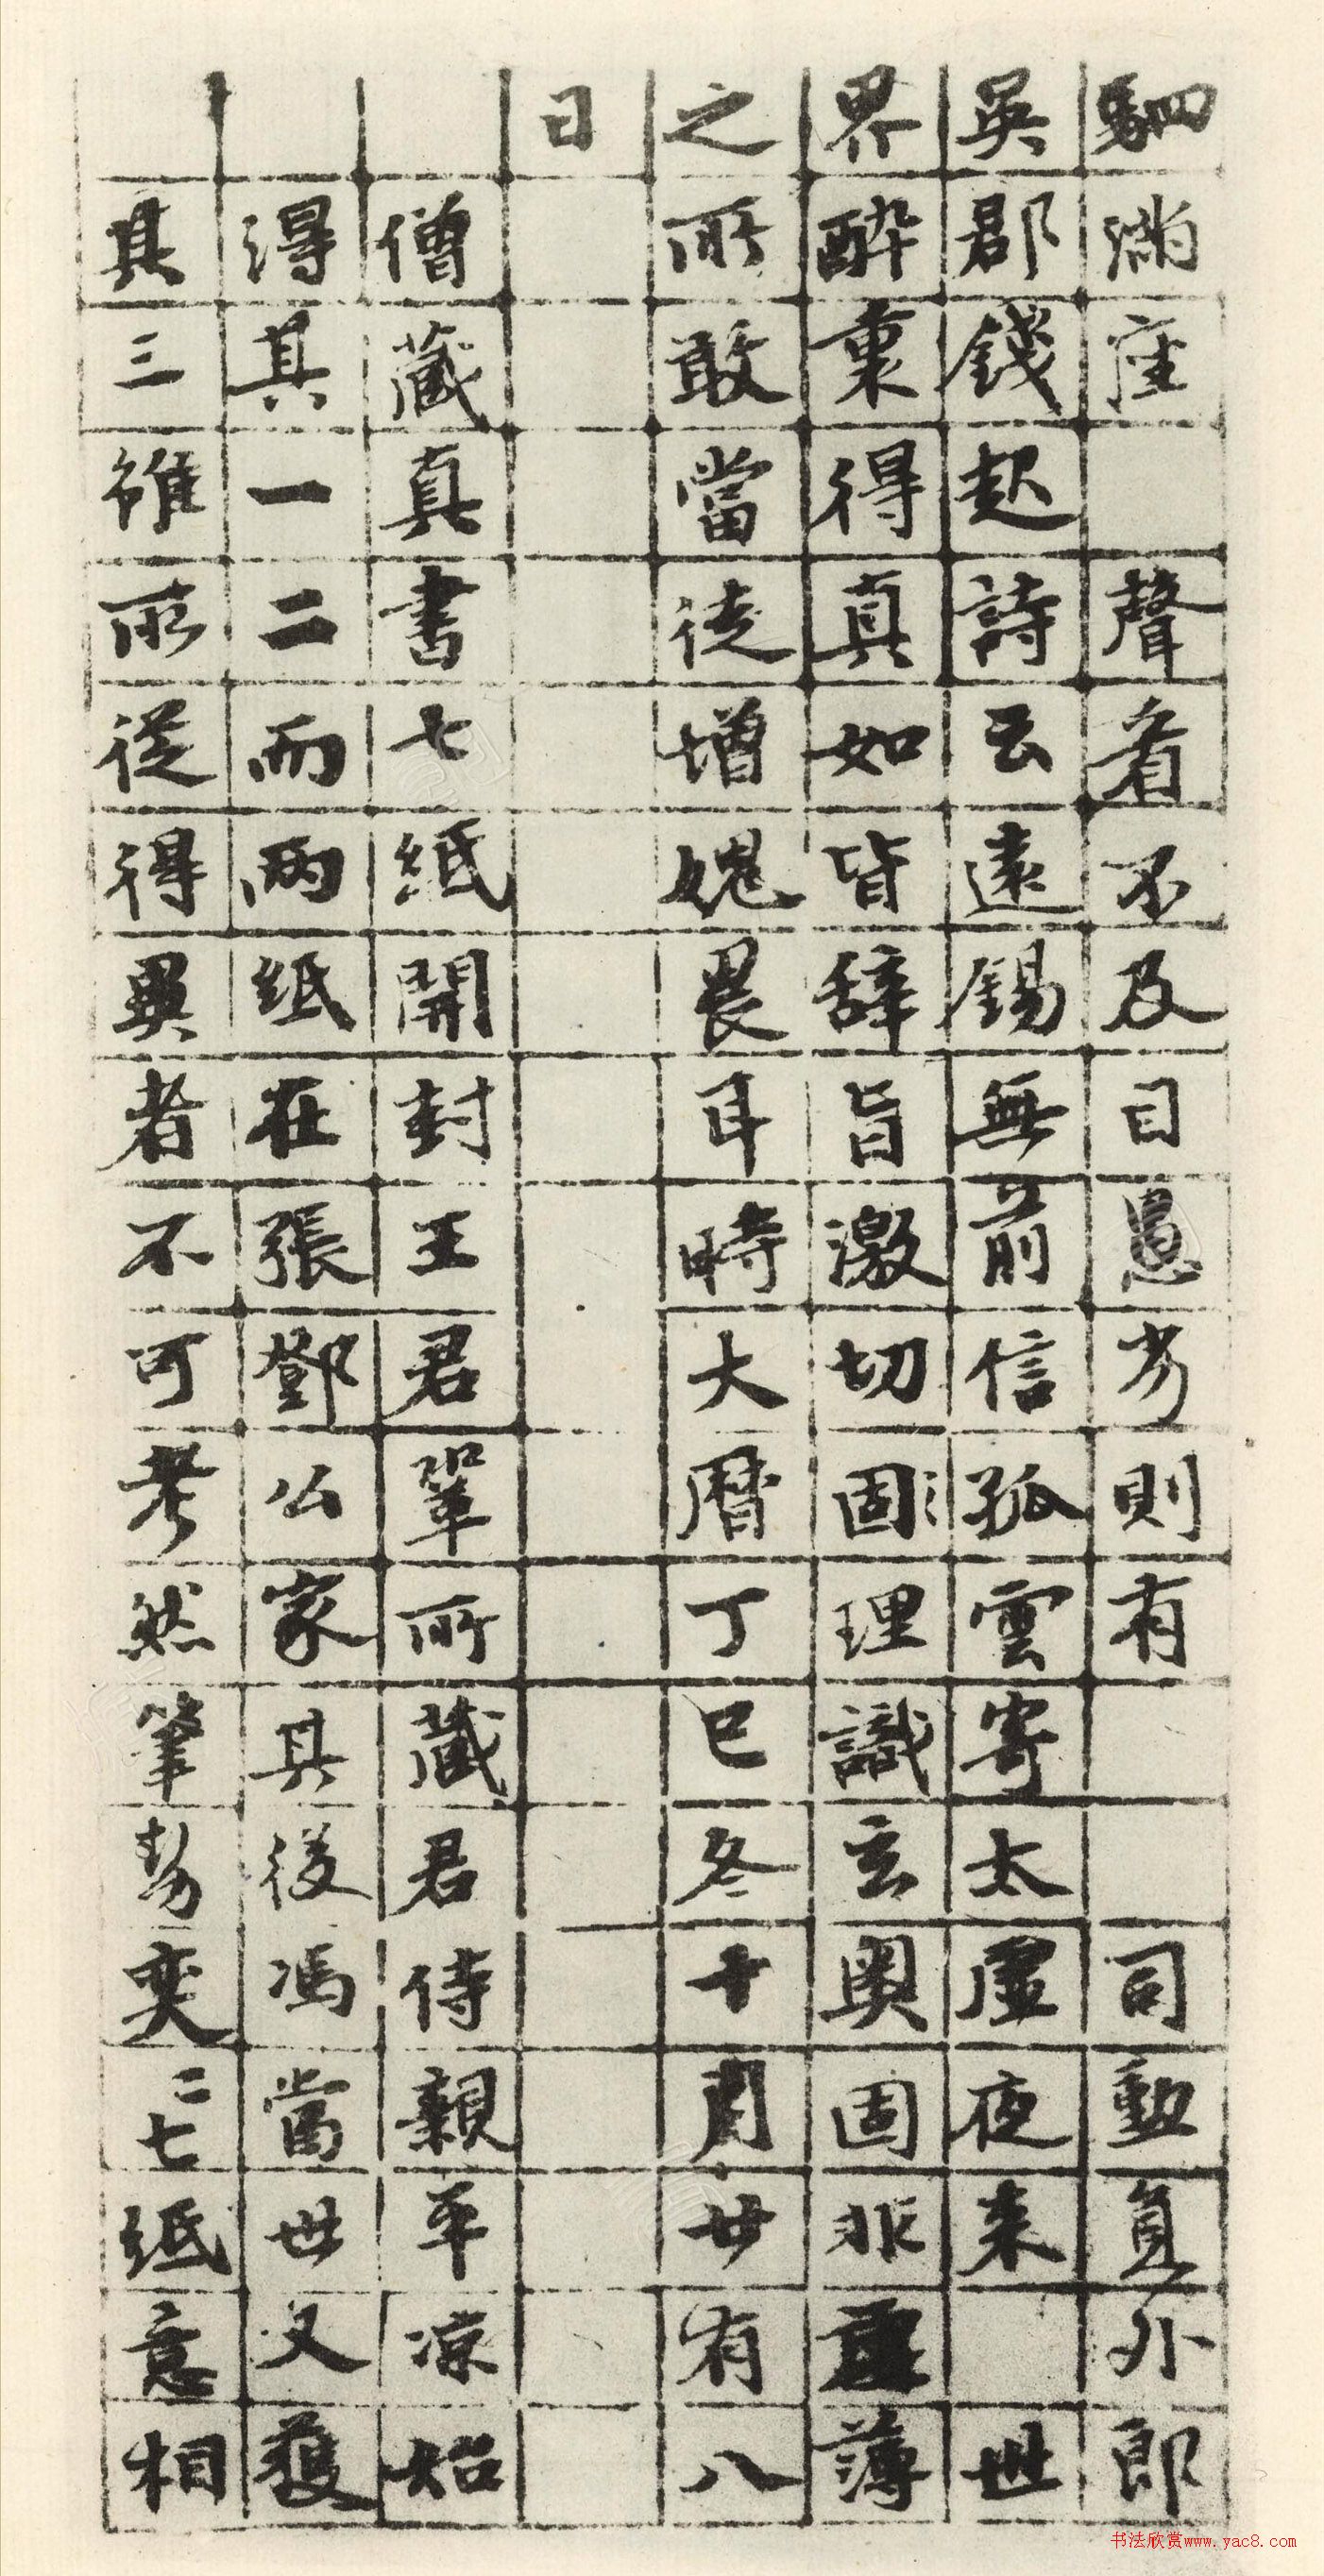 駟滿座聲看不及目愚劣則有司勳員外郎
吳郡錢起詩云遠錫無前信孤雲寄太虛夜來世
界酔稟得真如皆辞旨激切固理識玄奧固非虛薄
之所敢當徒增媿畏耳時大曆丁巳冬十月廿有八
日
僧藏真書七紙開封王君鞏所藏君侍親平凉始
得其一二而兩紙在張鄧公家其後馮當世又獲
其三雖所從得異者不可考然筆勢奕二七紙意相
书法欣赏www.yac8.com